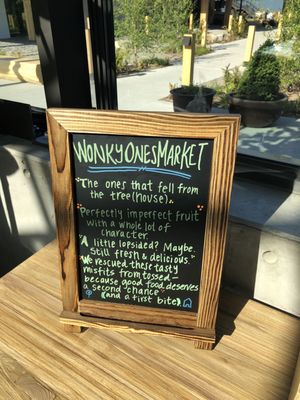 WONKY ONES MARKET
"The ones that fell from
the tree(house)."
"Perfectly imperfect fruit
with a whole lot of
character."
"A little lopsided? Maybe.
Still fresh & delicious."
"We rescued these tasty
misfits from tossed—
because good food deserves
a second chance"
(and a first bite)